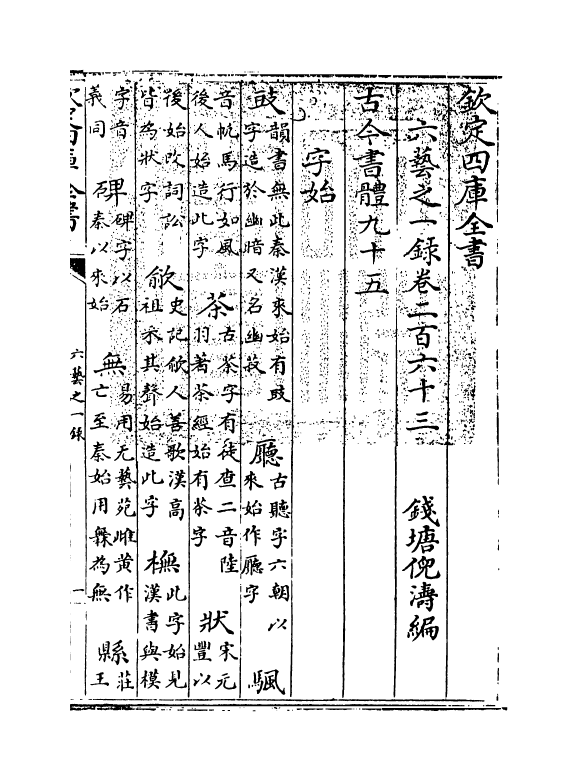 欽定四庫全書
六藝之一録卷二百六十三　錢塘倪濤編
古今書體九十五
字始
豉 韻書無此秦漢來始有豉字造於幽暗又名幽菽 廳 古聽字六朝以來始作廳字 颿
音帆馬行如風後人始造此字 茶 古茶字有徒查二音陸羽著茶經始有茶字 狀 宋元豐以
後始改詞訟皆為狀字 歈 史記歈人善歌漢高祖采其聲始造此字 橅 無此字始見漢書與模
字音義同 碑 碑字以石秦以來始 無 易用无藝苑雌黄作亡至秦始用橆為無 縣 莊王
六藝之一録
一